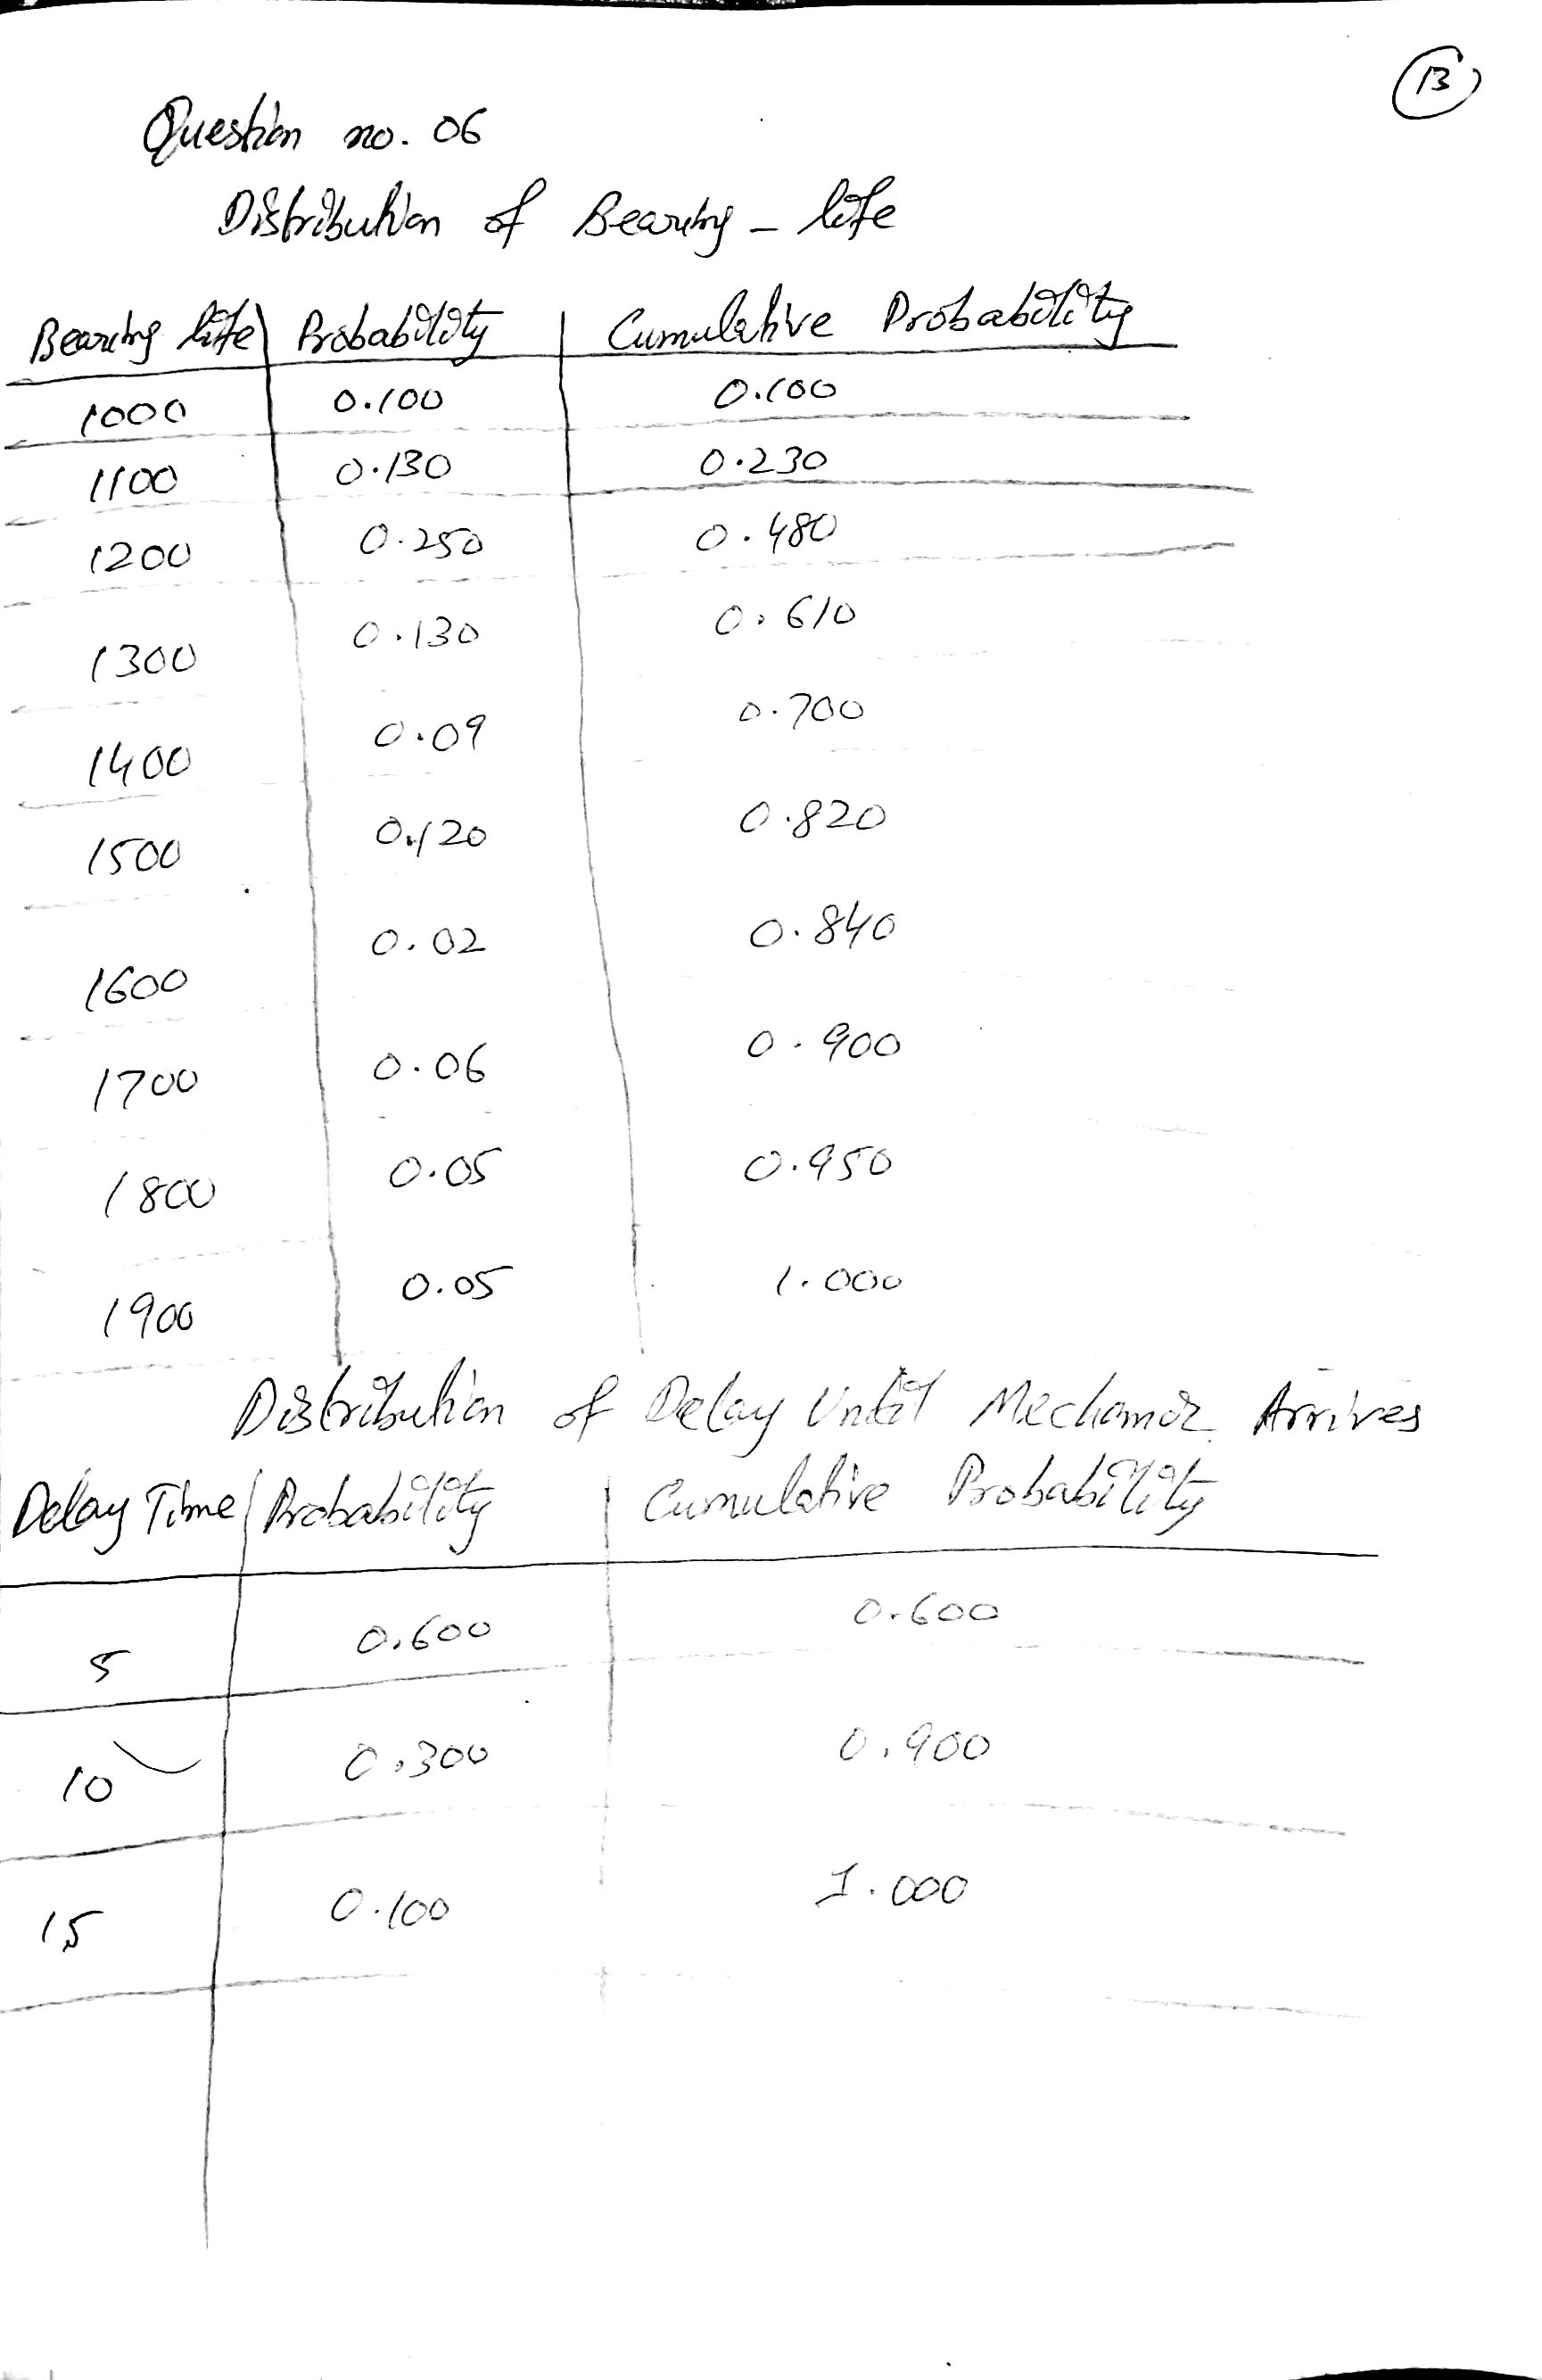 13
Question no. 06
Distribution of Bearing - life
Bearing life | Probability | Cumulative Probability
1000 0.100 0.100
1100 0.130 0.230
1200 0.250 0.480
1300 0.130 0.610
1400 0.09 0.700
1500 0.120 0.820
1600 0.02 0.840
1700 0.06 0.900
1800 0.05 0.950
1900 0.05 1.000
Distribution of Delay Until Mechanic Arrives
Delay Time | Probability | Cumulative Probability
5 0.600 0.600
10 0.300 0.900
15 0.100 1.000